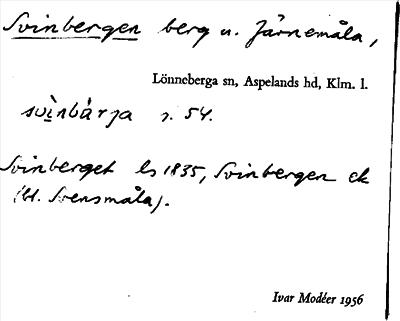 Svinbergen berg u. Järnemåla,
Lönneberga sn, Aspelands hd, Klm. l.
svìnbàrja s. 54.
Svinberget ls 1835, Svinbergen ek
(bl. Svensmåla).
Ivar Modéer 1956